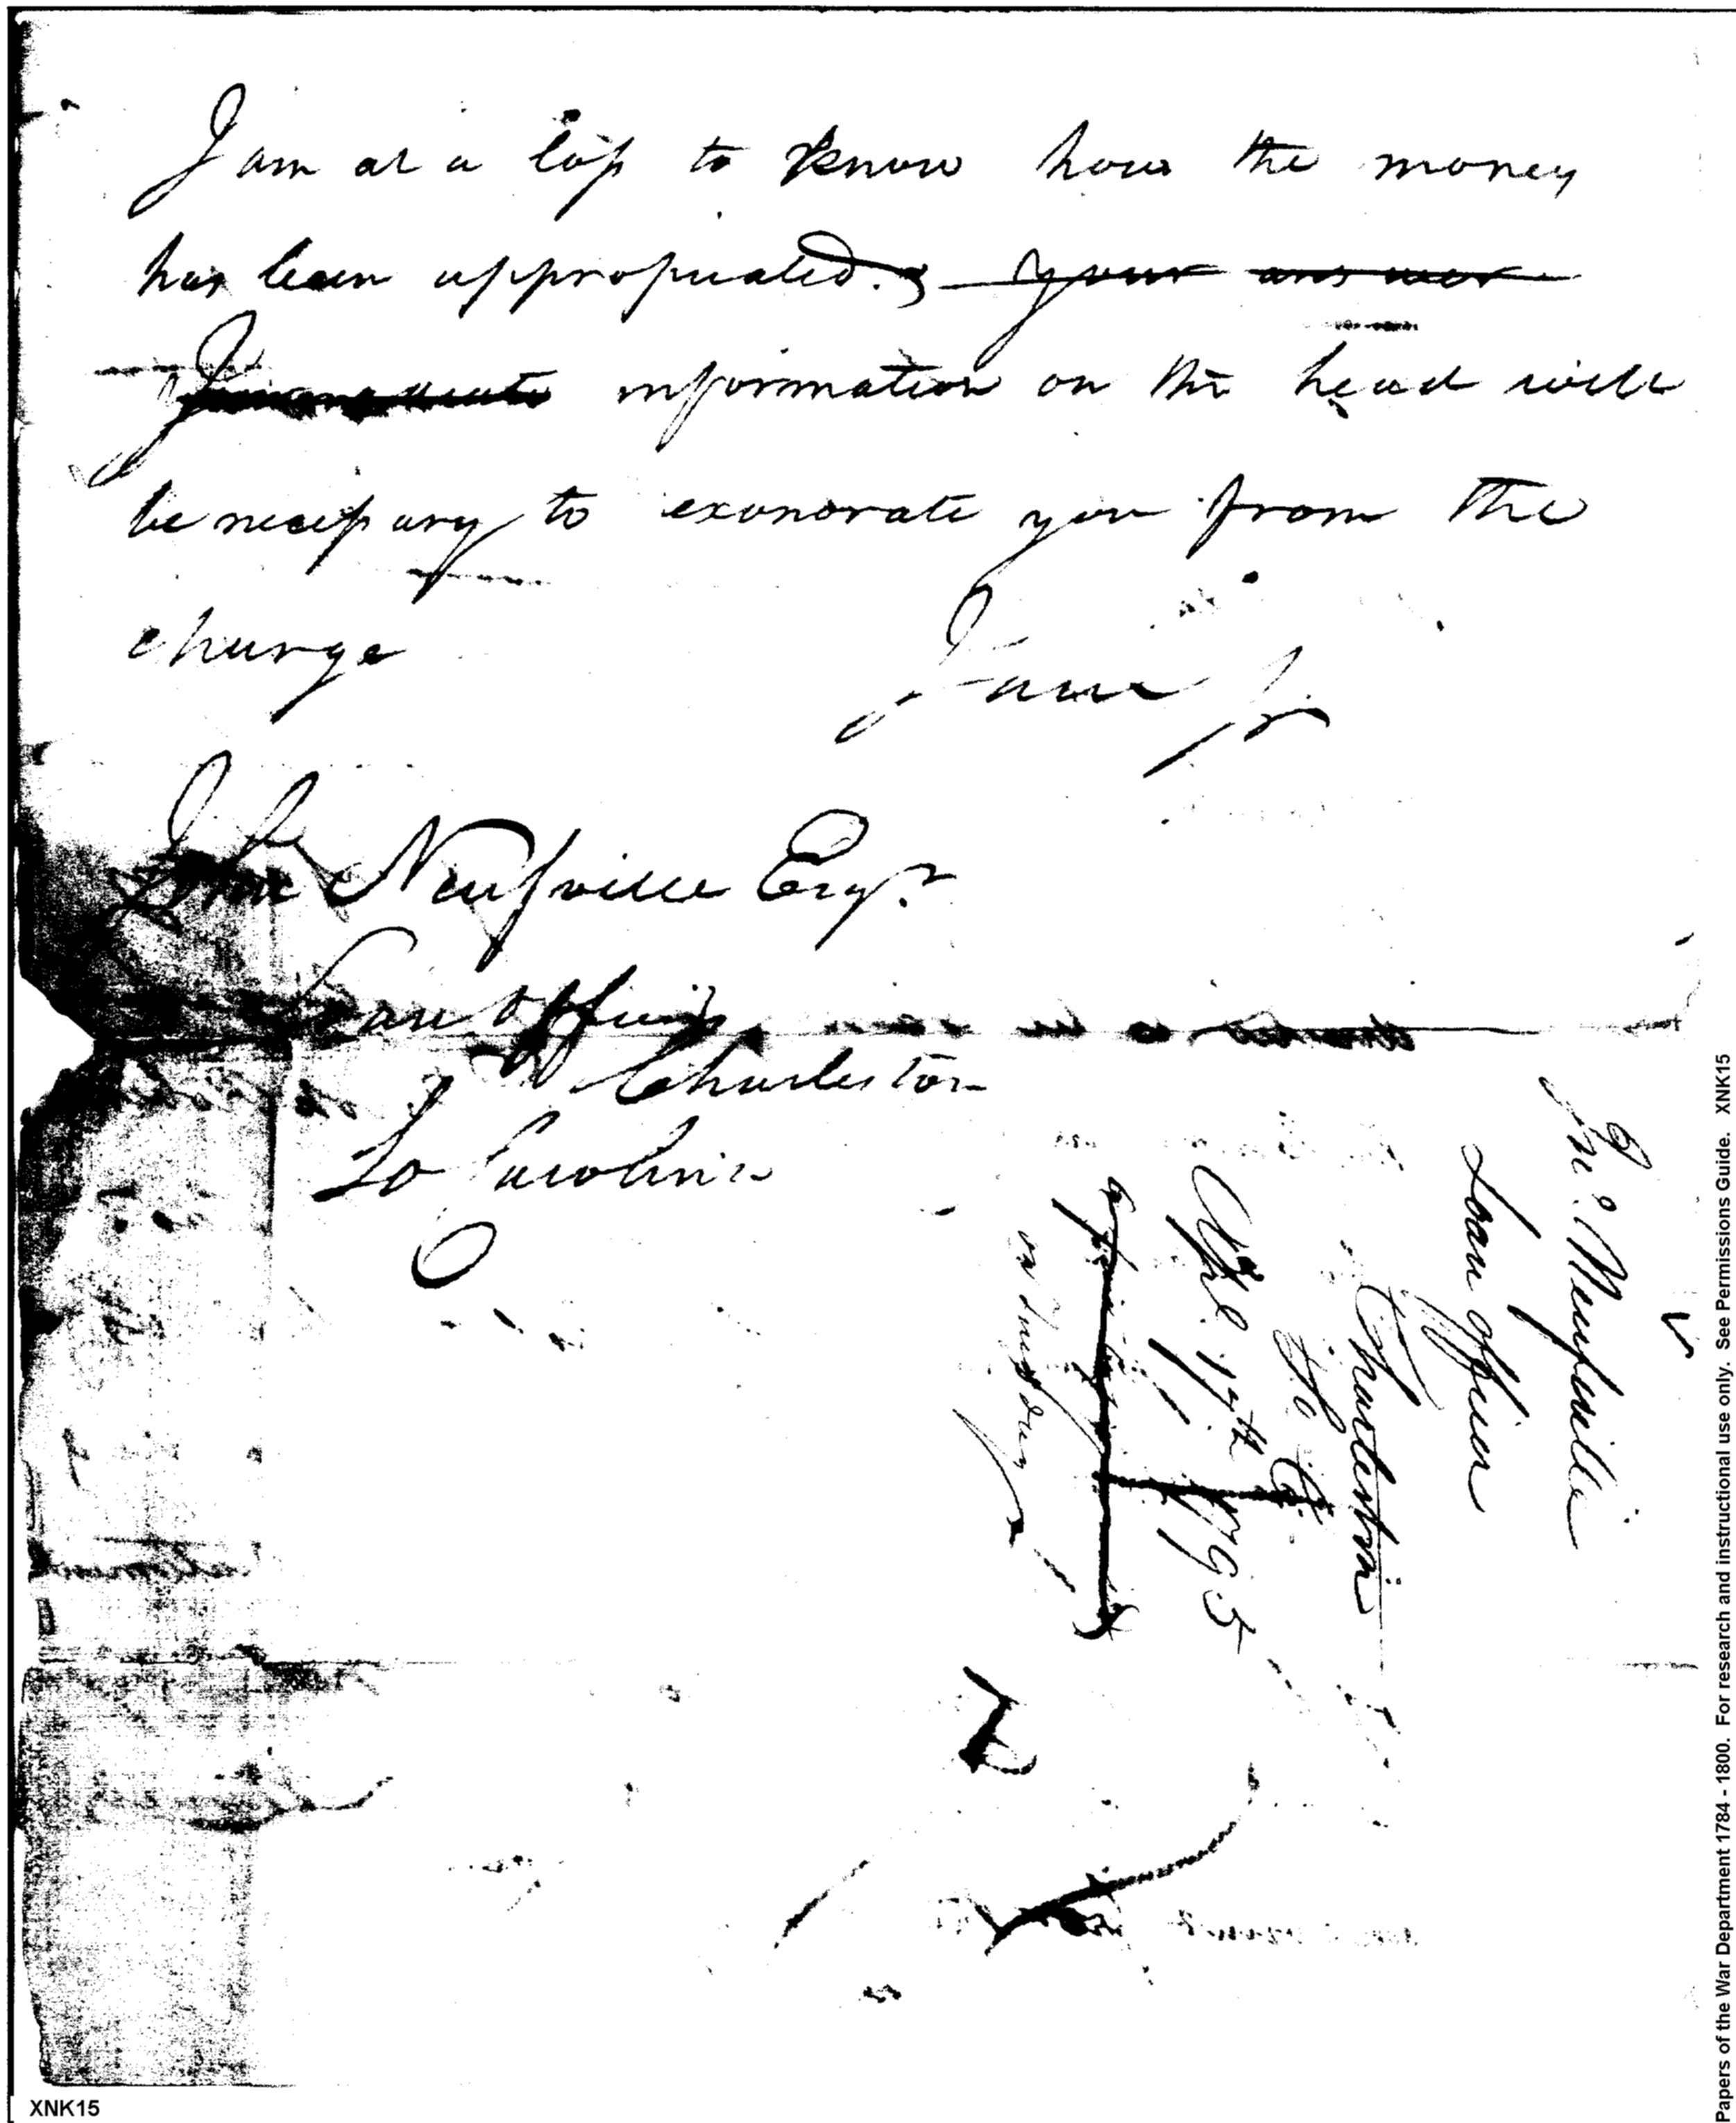 I am at a loss to know how the money
has been appropriated. your answer
Immediate information on this head will
be necessary to exonorate you from the
charge
I am
John Neufville Esqr.
Loan Officer
Charleston
So Carolina
Jno. Neufville
Loan officer
Charleston
So Ca.
Apl. 17th 1795
XNK15
Papers of the War Department 1784 - 1800. For research and instructional use only. See Permissions Guide. XNK15